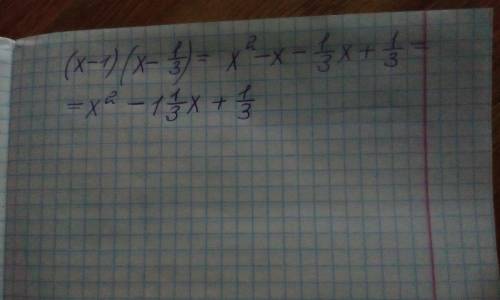 (x-1)(x-1/3)= x²-x-1/3x+1/3=
=x²-1 1/3x+1/3